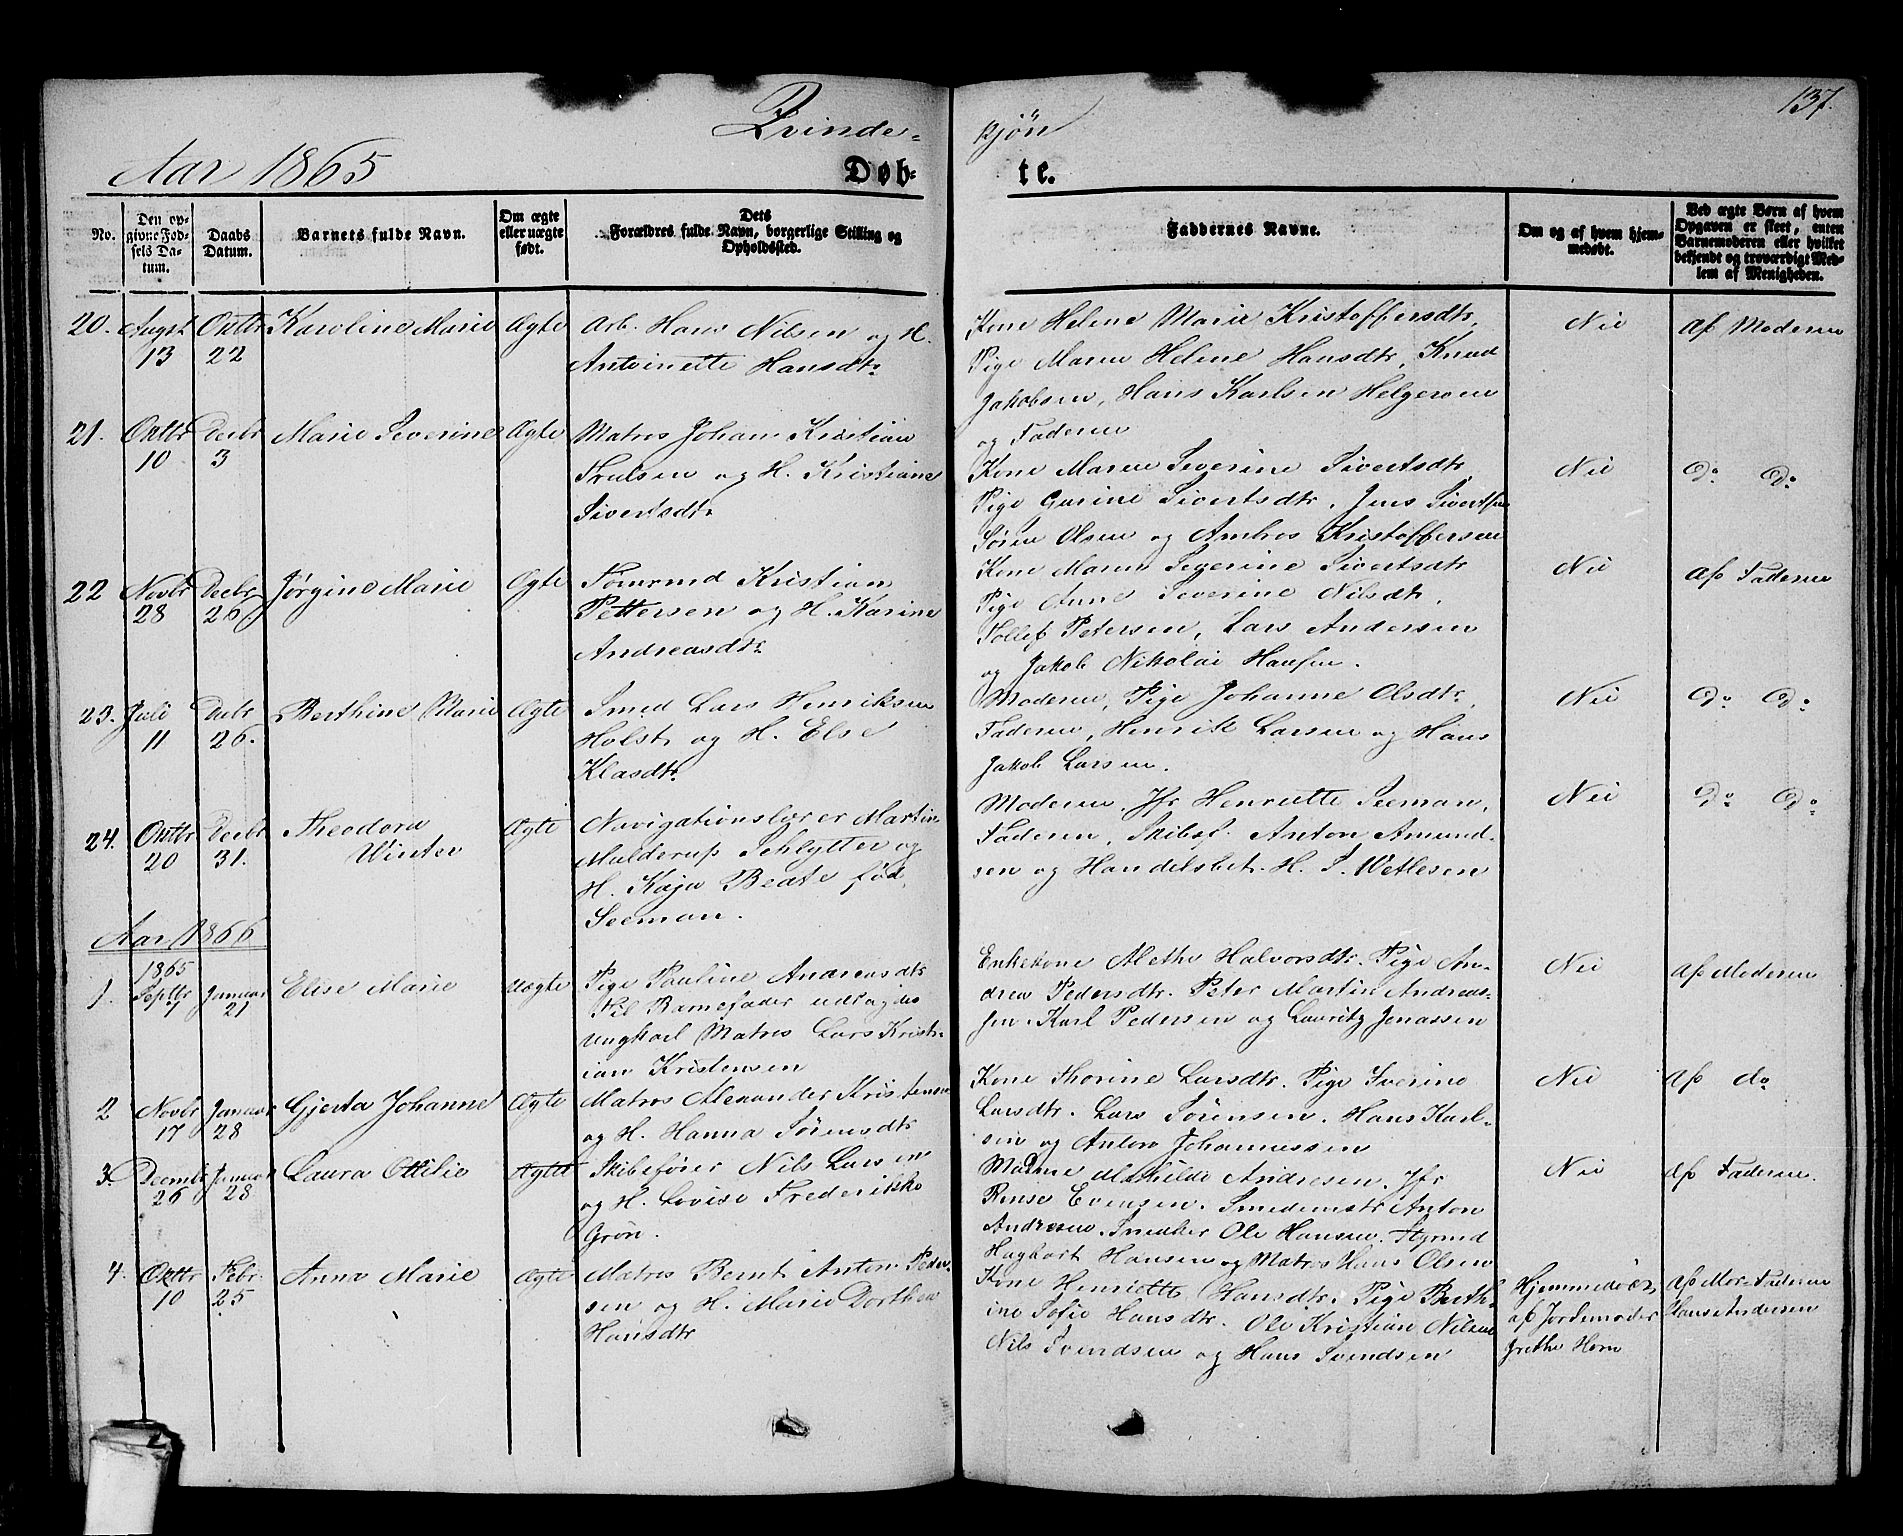 137.
Qvinde- kjøn
Aar 1865
Døb- te.
No.
Den op-
givne Fød-
sels Da-
tum.
Daabs
Datum.
Barnets fulde Navn.
Om ægte
eller uægte
født.
Dets
Forældres fulde Navn, borgerlige Stilling og
Opholdssted.
Faddernes Navne.
Om og af hvem hjem-
medøbt.
Ved ægte Børn af hvem
Opgaven er skeet, enten
Barnemoderen eller hvilket
bekjendt og troværdigt Med-
lem af Menigheden.
20. Augst 13 Oktbr 22 Karoline Marie Ægte
Arb. Hans Nilsen og H.
Antoinette Hansdtr
Kone Helene Marie Kristoffersdtr,
Pige Maren Helene Hansdtr, Knud
Jakobsen, Hans Karlsen Helgeroen
og Faderen
Nei
af Moderen
21. Oktbr 10 Decbr 3 Marie Severine Ægte
Matros Johan Kristian
Trulsen og H. Kristiane
Sivertsdtr
Kone Maren Severine Sivertsdtr
Pige Gurine Sivertsdtr, Jens Sivertsen
Søren Olsen og Ambros Kristoffersen
Nei
do do
22 Novbr 28 Decbr 26. Jørgine Marie Ægte
Tømrmd Kristian
Pettersen og H. Karine
Andreasdtr
Kone Maren Severine Sivertsdtr
Pige Anne Severine Nilsdtr,
Tollef Petersen, Lars Andersen
og Jakob Nikolai Hansen.
Nei
af Faderen
23. Juli 11 Decbr 26. Berthine Marie Ægte
Smed Lars Henriksen
Holst og H. Else
Klasdtr
Moderen, Pige Johanne Olsdtr,
Faderen, Henrik Larsen og Hans
Jakob Larsen.
Nei
do do
24. Oktbr 20 Decbr 31. Theodora
Winter
Ægte
Navigationslærer Martin
Mulderup Schlytter og
H. Kaja Beate fød
Seeman.
Moderen, Jfr Henriette Seeman,
Faderen, Skibsf. Anton Amund-
sen og Handelsbet. H. S. Wetlesen
Nei
do do
Aar 1866
1. 1865 Septbr 7 Januar 21 Elise Marie Uægte
Pige Pauline Andreasdtr
Til Barnefader udlagdes
ungkarl Matros Lars Krist-
ian Kristensen
Enkekone Methe Halvorsdtr. Pige An-
drea Pedersdtr. Peter Martin Andreas-
sen. Karl Pedersen og Lauritz Jonassen
Nei
af Moderen
2 Novbr 17 Januar 28 Gjerta Johanne Ægte
Matros Alexander Kristensen
og H. Hanna Sørensdtr
Kone Thorine Larsdtr. Pige Iverine
Larsdtr. Lars Sørensen. Hans Karl-
sen og Anton Johannessen
Nei
af do
3. Decmbr 26 Januar 28 Laura Ottilie Ægte
Skibsfører Nils Larsen
og H. Lovise Frederikke
Grøn.
Madme Mathilde Andresen. Jfr
Rense Evensen. Smedemstr Anton
Andresen. Snedker Ole Hansen. Styrmd
Hagbart Hansen og Matros Hans Olsen
Nei
af Faderen.
4. Oktbr 10 Febr. 25 Anna Marie Ægte
Matros Bernt Anton Peder-
sen og H. Marie Dorthea
Hansdtr
Kone Henriette Hansdtr. Pige Berth-
ine Sofie Hansdtr. Ole Kristian Nilsen
Nils Svendsen og Hans Svendsen
Hjemmedøbt
af Jordemoder
Grethe Horn
af Mor-Faderen
Hans Andersen